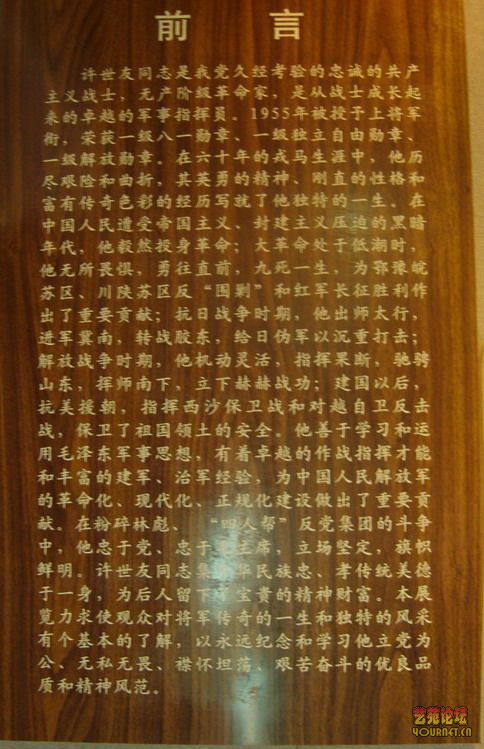 前 言
许世友同志是我党久经考验的忠诚的共产
主义战士，无产阶级革命家，是从战士成长起
来的卓越的军事指挥员。1955年被授于上将军
衔，荣获一级八一勋章、一级独立自由勋章、
一级解放勋章。在六十年的戎马生涯中，他历
尽艰险和曲折，其英勇的精神、刚直的性格和
富有传奇色彩的经历写就了他独特的一生。在
中国人民遭受帝国主义、封建主义压迫的黑暗
年代，他毅然投身革命；大革命处于低潮时，
他无所畏惧，勇往直前，九死一生，为鄂豫皖
苏区、川陕苏区反“围剿”和红军长征胜利作
出了重要贡献；抗日战争时期，他出师太行，
进军冀南，转战胶东，给日伪军以沉重打击；
解放战争时期，他机动灵活，指挥果断，驰骋
山东，挥师南下，立下赫赫战功；建国以后，
抗美援朝，指挥西沙保卫战和对越自卫反击
战，保卫了祖国领土的安全。他善于学习和运
用毛泽东军事思想，有着卓越的作战指挥才能
和丰富的建军、治军经验，为中国人民解放军
的革命化、现代化、正规化建设做出了重要贡
献。在粉碎林彪、“四人帮”反党集团的斗争
中，他忠于党、忠于毛主席，立场坚定，旗帜
鲜明。许世友同志集中华民族忠、孝传统美德
于一身，为后人留下了宝贵的精神财富。本展
览力求使观众对将军传奇的一生和独特的风采
有个基本的了解，以永远纪念和学习他立党为
公、无私无畏、襟怀坦荡、艰苦奋斗的优良品
质和精神风范。
艺苑论坛
4OURNET.CN